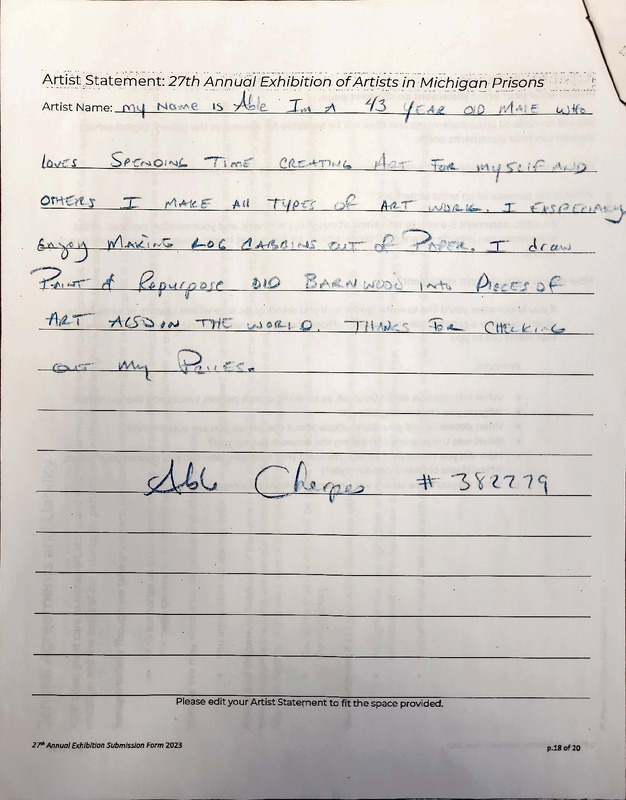 Artist Statement: 27th Annual Exhibition of Artists in Michigan Prisons
Artist Name: my Name is Able Im A 43 YEAR OlD MAlE WHo
loves SPENDING TIME CREATING ART FoR MYSElF AND
OTHERS I MAKE All TYPES of ART WORK. I EXSPECIAllY
Enjoy MAKING LOG CABBINS OUT of PAPER. I draw
PAINT & Repurpose OlD BARNWOOD INTO PIECES OF
ART AlSO IN THE WORlD. THANKS FoR CHECKING
OUT My
Able Cherpes # 382279
Please edit your Artist Statement to fit the space provided.
27th Annual Exhibition Submission Form 2023
p.18 of 20